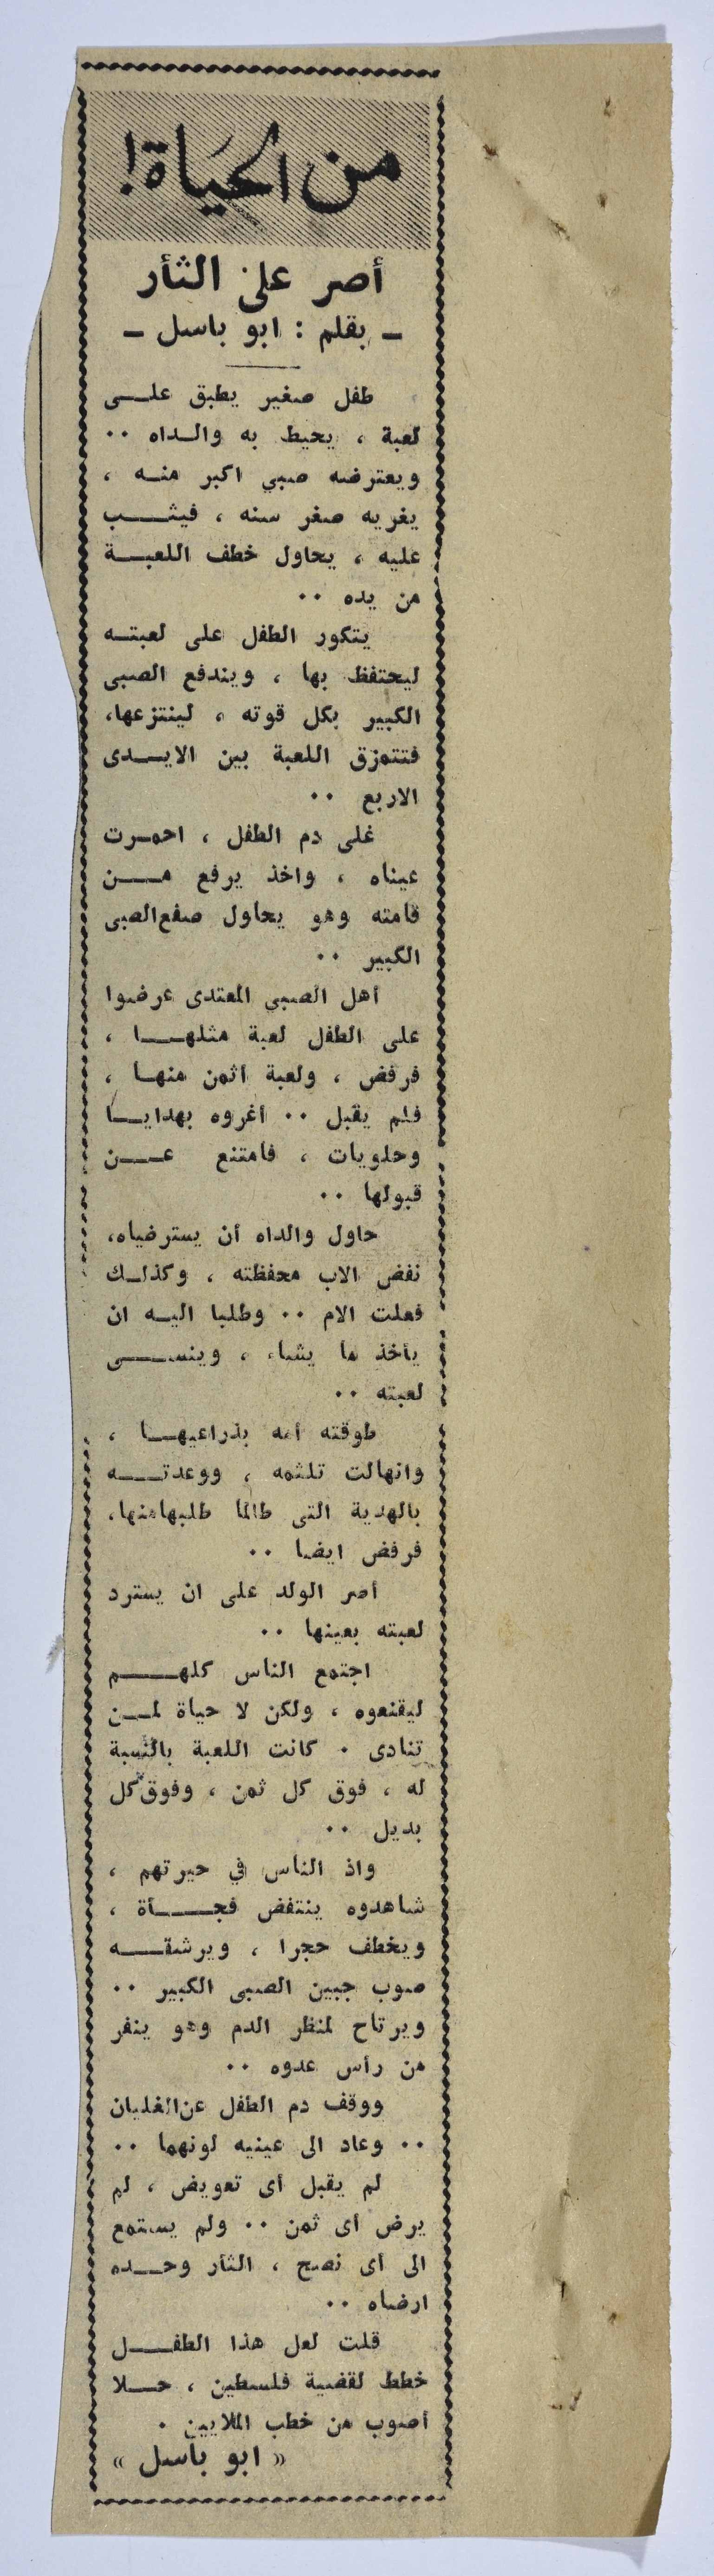 من الحياة!
أصر على الثأر
ـ بقلم : ابو باسل ـ
طفل صغير يطبق على
لعبة ، يحيط به والداه ..
ويعترضه صبي اكبر منه ،
يغريه صغر سنه ، فيثب
عليه ، يحاول خطف اللعبة
من يده ..
يتكور الطفل على لعبته
ليحتفظ بها ، ويندفع الصبى
الكبير بكل قوته ، لينتزعها،
فتتمزق اللعبة بين الايدى
الاربع ..
غلى دم الطفل ، احمرت
عيناه ، واخذ يرفع من
قامته وهو يحاول صفع الصبى
الكبير ..
أهل الصبي المعتدى عرضوا
على الطفل لعبة مثلها ،
فرفض ، ولعبة أثمن منها ،
فلم يقبل .. أغروه بهدايا
وحلويات ، فامتنع عن
قبولها ..
حاول والداه أن يسترضياه،
نفض الاب محفظته ، وكذلك
فعلت الام .. وطلبا اليه ان
يأخذ ما يشاء ، وينسى
لعبته ..
طوقته امه بذراعيها ،
وانهالت تلثمه ، ووعدته
بالهدية التى طالما طلبها منها،
فرفض ايضا ..
أصر الولد على ان يسترد
لعبته بعينها ..
اجتمع الناس كلهم
ليقنعوه ، ولكن لا حياة لمن
تنادى . كانت اللعبة بالنسبة
له ، فوق كل ثمن ، وفوق كل
بديل ..
واذ الناس في حيرتهم ،
شاهدوه ينتفض فجأة ،
ويخطف حجرا ، ويرشقه
صوب جبين الصبى الكبير ..
ويرتاح لمنظر الدم وهو ينفر
من رأس عدوه ..
ووقف دم الطفل عن الغليان
.. وعاد الى عينيه لونهما ..
لم يقبل أى تعويض ، لم
يرض أى ثمن .. ولم يستمع
الى أى نصح ، الثأر وحده
ارضاه ..
قلت لعل هذا الطفل
خطط لقضية فلسطين ، حلا
أصوب من خطب الملايين .
« ابو باسل »